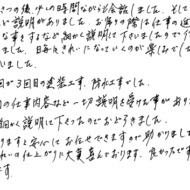 きつの後、少しの時間ながらも会話しました。そして
い説明がありました。お帰りの際は仕事の進
な事をするなど細かく説明して下さいましたので
ました。日毎にきれいになっていくのが楽しみでした
いました。
回が3回目の塗装工事、防水工事でした。
の仕事内容など一切説明を受けた事があり
細かく説明して下さったのでおどろきました。
ますと安心にはお任せできますので助かりました
れいに仕上がり大変喜んでおります。良かったです
です。